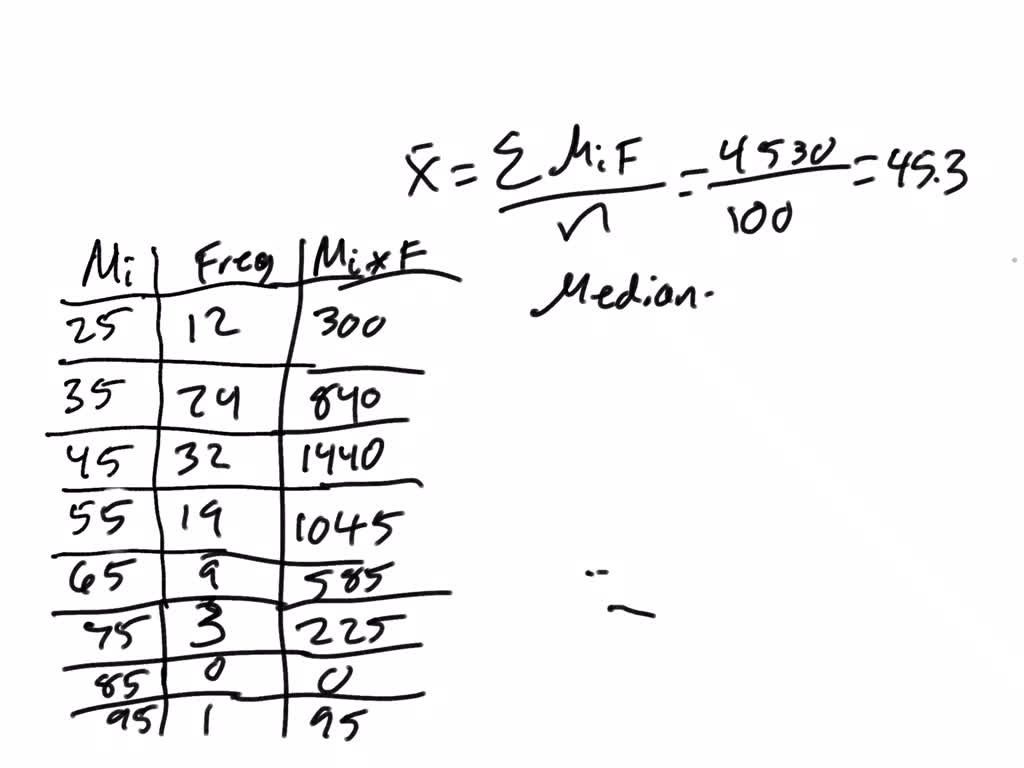 x̄ = Σ MiF / n = 4530 / 100 = 45.3
Median.
Mi Freq Mi*F
25 12 300
35 24 840
45 32 1440
55 19 1045
65 9 585
75 3 225
85 0 0
95 1 95